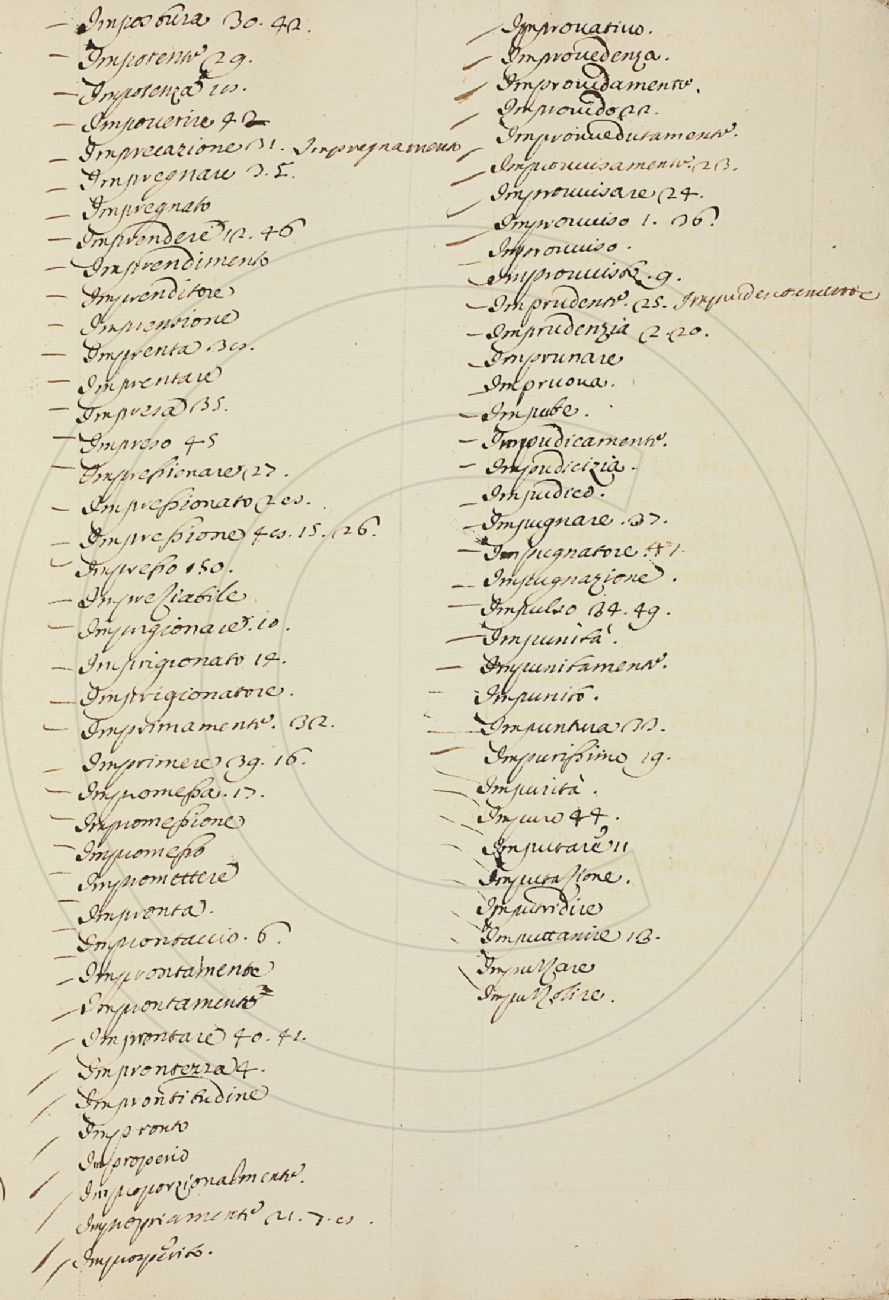 Impostura 30. 42.
Impotente 29.
Impotenza
Impoverire 42
Imprecazione 31. Impregnamento
Impregnare 3. 5.
Impregnato
Imprendere 12. 46
Imprendimento
Imprenditore
Imprensione
Imprenta
Imprentare
Impresa 35.
Impreso 45
Impressionare 27.
Impressionato
Impressione 15. 26.
Impresso 150.
Imprezzabile
Imprigionare. 10.
Imprigionato 14.
Imprigionatore.
Imprimamente. 32.
Imprimere 39. 16.
Impromessa. 17.
Impromessione
Impromesso
Impromettere
Impronta.
Improntaccio. 6.
Improntamente
Improntamento
Improntare 40. 41.
Improntezza 4.
Improntitudine
Impronto
Improperio
Improporzionalmente.
Impropriamente 21. 7.
Improsperito.
Improvativo.
Improvedenza.
Improvidamente.
Improvido 22.
Improvvedutamente.
Improvvisamente. 23.
Improvvisare 24.
Improvviso 1. 36.
Improvviso.
9.
Imprudente. 25. Imprudentemente
Imprudenzia 2. 20.
Imprunare
Impruova.
Impube.
Impudicamente.
Impudicizia.
Impudico.
Impugnare. 37.
Impugnatore. 47.
Impugnazione.
Impulso 34. 49.
Impunità.
Impunitamente.
Impunito.
Impuntura 33.
Impurissimo 19.
Impurità.
Impuro 44.
Imputare 11
Imputazione.
Imputridire
Imputtanire 13.
Impuzzare
Impuzzolire.